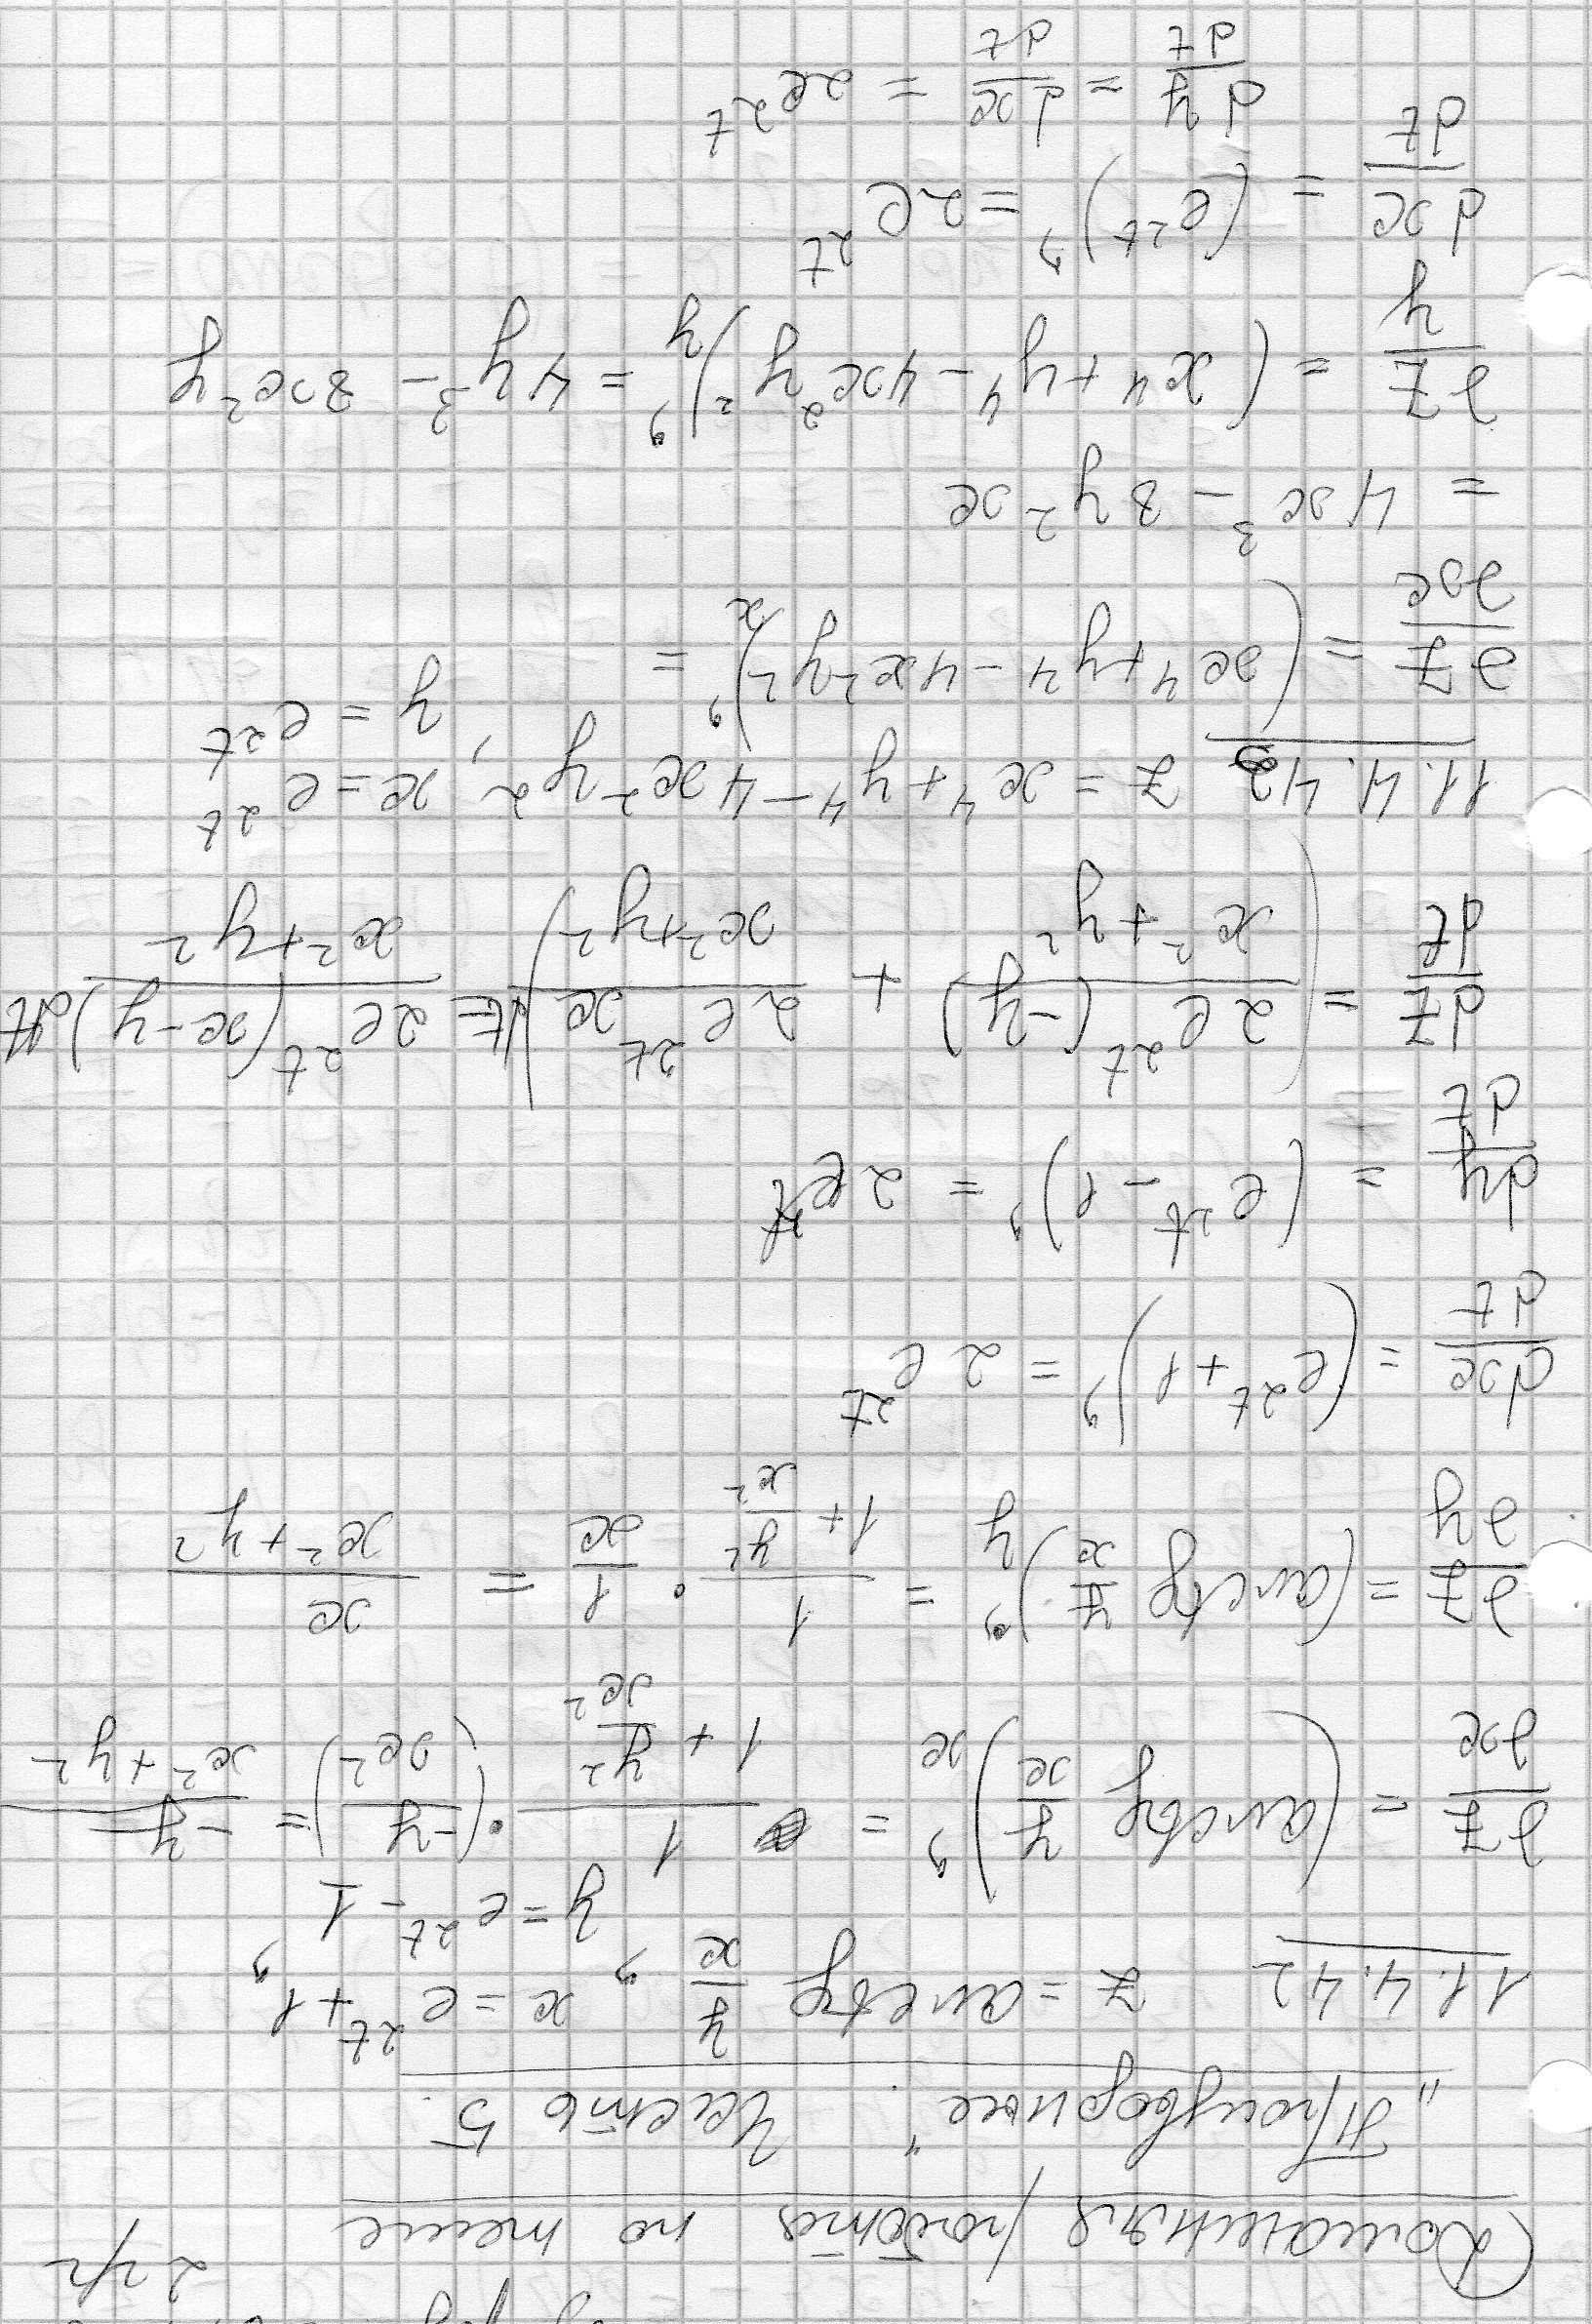 2 гр
Домашняя работа по теме
„Производные". Часть 5.
11.4.42 z = arctg y/x, x = e^{2t}+1,
y = e^{2t} - 1
∂z/∂x = (arctg y/x)'_x = 1/(1 + y²/x²) · (-y/x²) = -y/(x²+y²)
∂z/∂y = (arctg y/x)'_y = 1/(1 + y²/x²) · 1/x = x/(x²+y²)
dx/dt = (e^{2t}+1)' = 2e^{2t}
dy/dt = (e^{2t} - 1)' = 2e^{2t}
dz/dt = (2e^{2t}(-y)/(x²+y²) + 2e^{2t}x/(x²+y²))dt = 2e^{2t}(x-y)dt/(x²+y²)
11.4.43 z = x⁴+y⁴-4x²y², x = e^{2t}
y = e^{2t}
∂z/∂x = (x⁴+y⁴-4x²y²)'_x =
= 4x³ - 8y²x
∂z/y = (x⁴+y⁴-4x²y²)'_y = 4y³ - 8x²y
dx/dt = (e^{2t})' = 2e^{2t}
dy/dt = dx/dt = 2e^{2t}